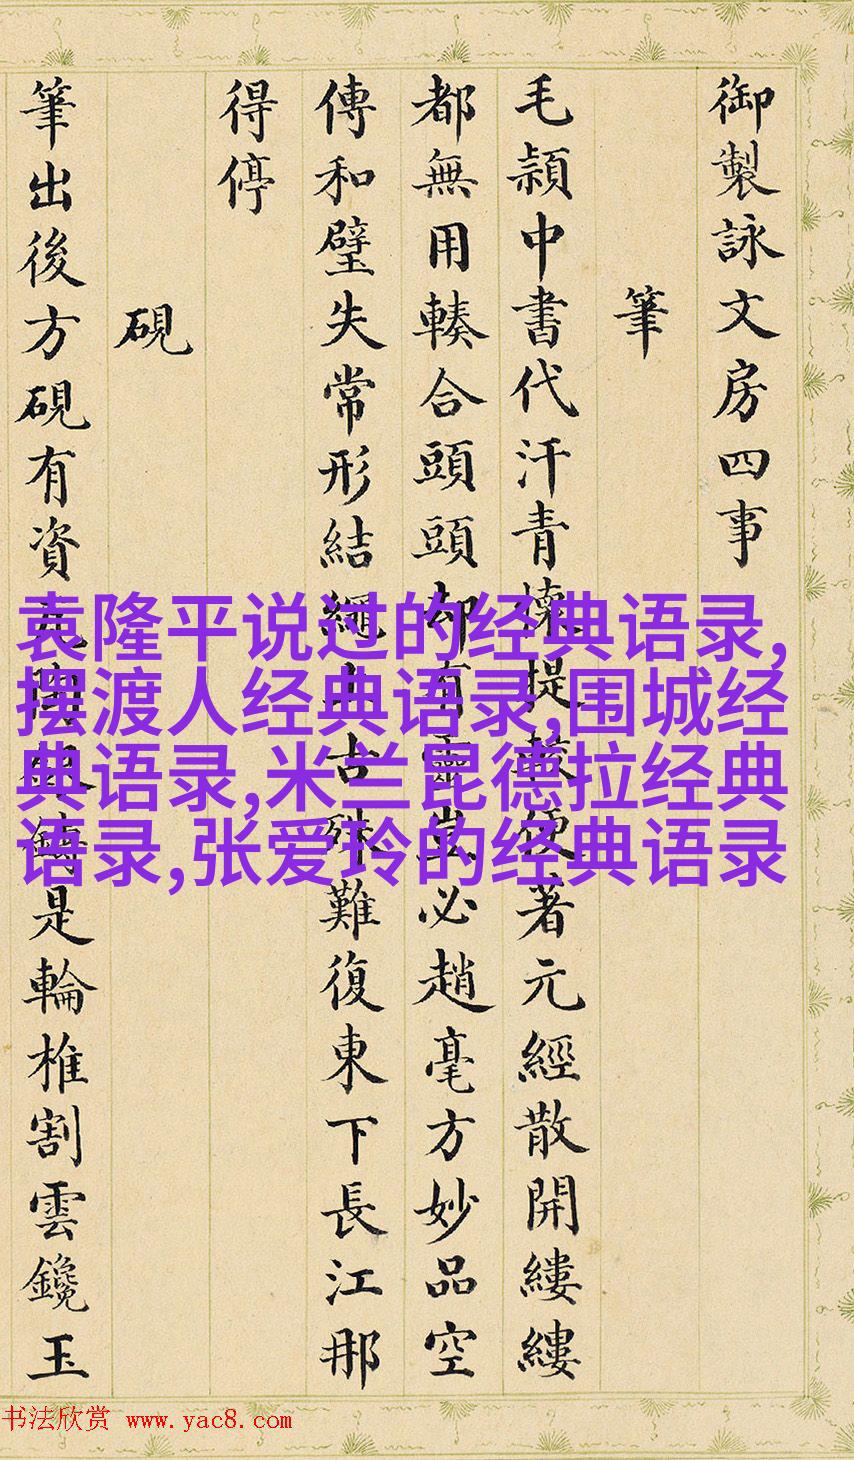 御製詠文房四事
筆
毛頴中書代汗青
提
便著元經散開縷縷
都無用轃合頭頭却有
必趙毫方妙品空
傳和璧失常形結繩上古殊難復東下長江那
得停
硯
筆出後方硯有資
鑄是輪椎割雲鑱玉
袁隆平说过的经典语录,
摆渡人经典语录,围城经
典语录,米兰昆德拉经典
语录,张爱玲的经典语录
书法欣赏 www.yac8.com